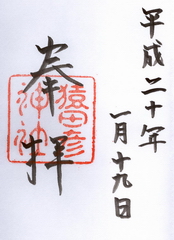 平成二十年
一月十九日
奉拝
猿田彦
神社